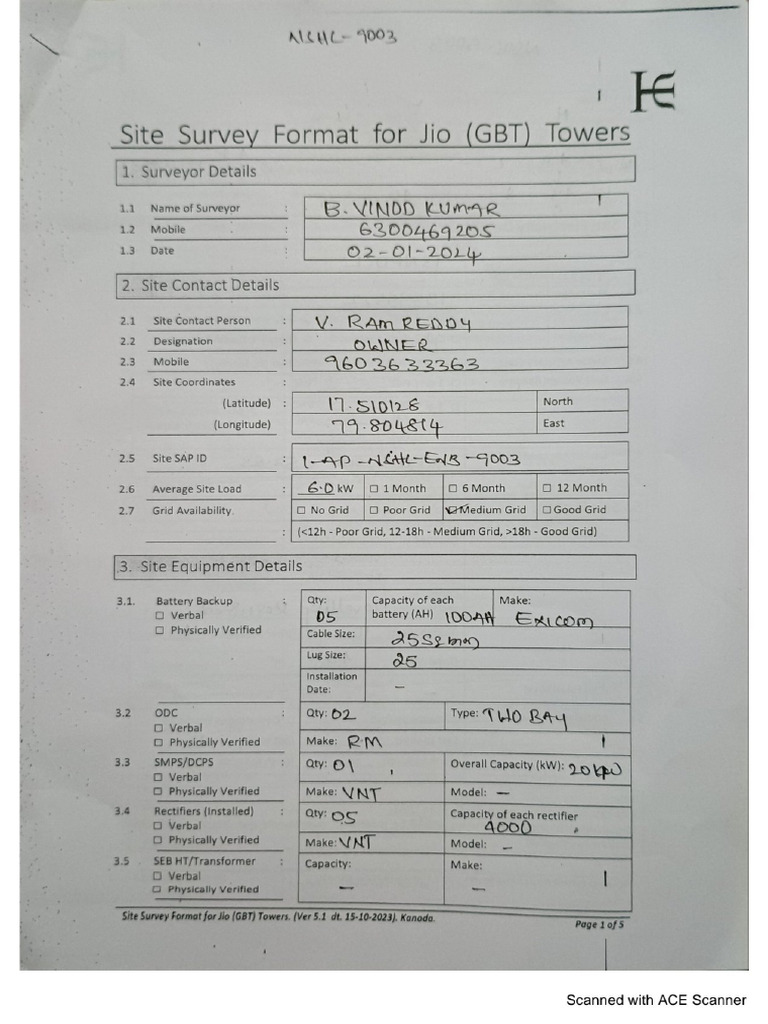 NSHL-9003
HE
Site Survey Format for Jio (GBT) Towers
1. Surveyor Details
1.1 Name of Surveyor : B. VINOD KUMAR
1.2 Mobile : 6300469205
1.3 Date : 02-01-2024
2. Site Contact Details
2.1 Site Contact Person : V. RAM REDDY
2.2 Designation : OWNER
2.3 Mobile : 9603633363
2.4 Site Coordinates :
(Latitude) : 17.510128 North
(Longitude) : 79.804814 East
2.5 Site SAP ID : I-AP-NSHL-ENB-9003
2.6 Average Site Load : 6.0 kW ☐ 1 Month ☐ 6 Month ☐ 12 Month
2.7 Grid Availability. ☐ No Grid ☐ Poor Grid ☑ Medium Grid ☐ Good Grid
: (<12h - Poor Grid, 12-18h - Medium Grid, >18h - Good Grid)
3. Site Equipment Details
3.1. Battery Backup : Qty: 05 Capacity of each battery (AH) 100AH Make: EXICOM
☐ Verbal
☐ Physically Verified
Cable Size: 25 Sq mm
Lug Size: 25
Installation Date: –
3.2 ODC : Qty: 02 Type: TWO BAY
☐ Verbal
☐ Physically Verified Make: RM
3.3 SMPS/DCPS : Qty: 01 Overall Capacity (kW): 20 kw
☐ Verbal
☐ Physically Verified Make: VNT Model: –
3.4 Rectifiers (Installed) : Qty: 05 Capacity of each rectifier 4000
☐ Verbal
☐ Physically Verified Make: VNT Model: –
3.5 SEB HT/Transformer : Capacity: – Make: –
☐ Verbal
☐ Physically Verified
Site Survey Format for Jio (GBT) Towers. (Ver 5.1 dt. 15-10-2023). Kanoda.
Page 1 of 5
Scanned with ACE Scanner